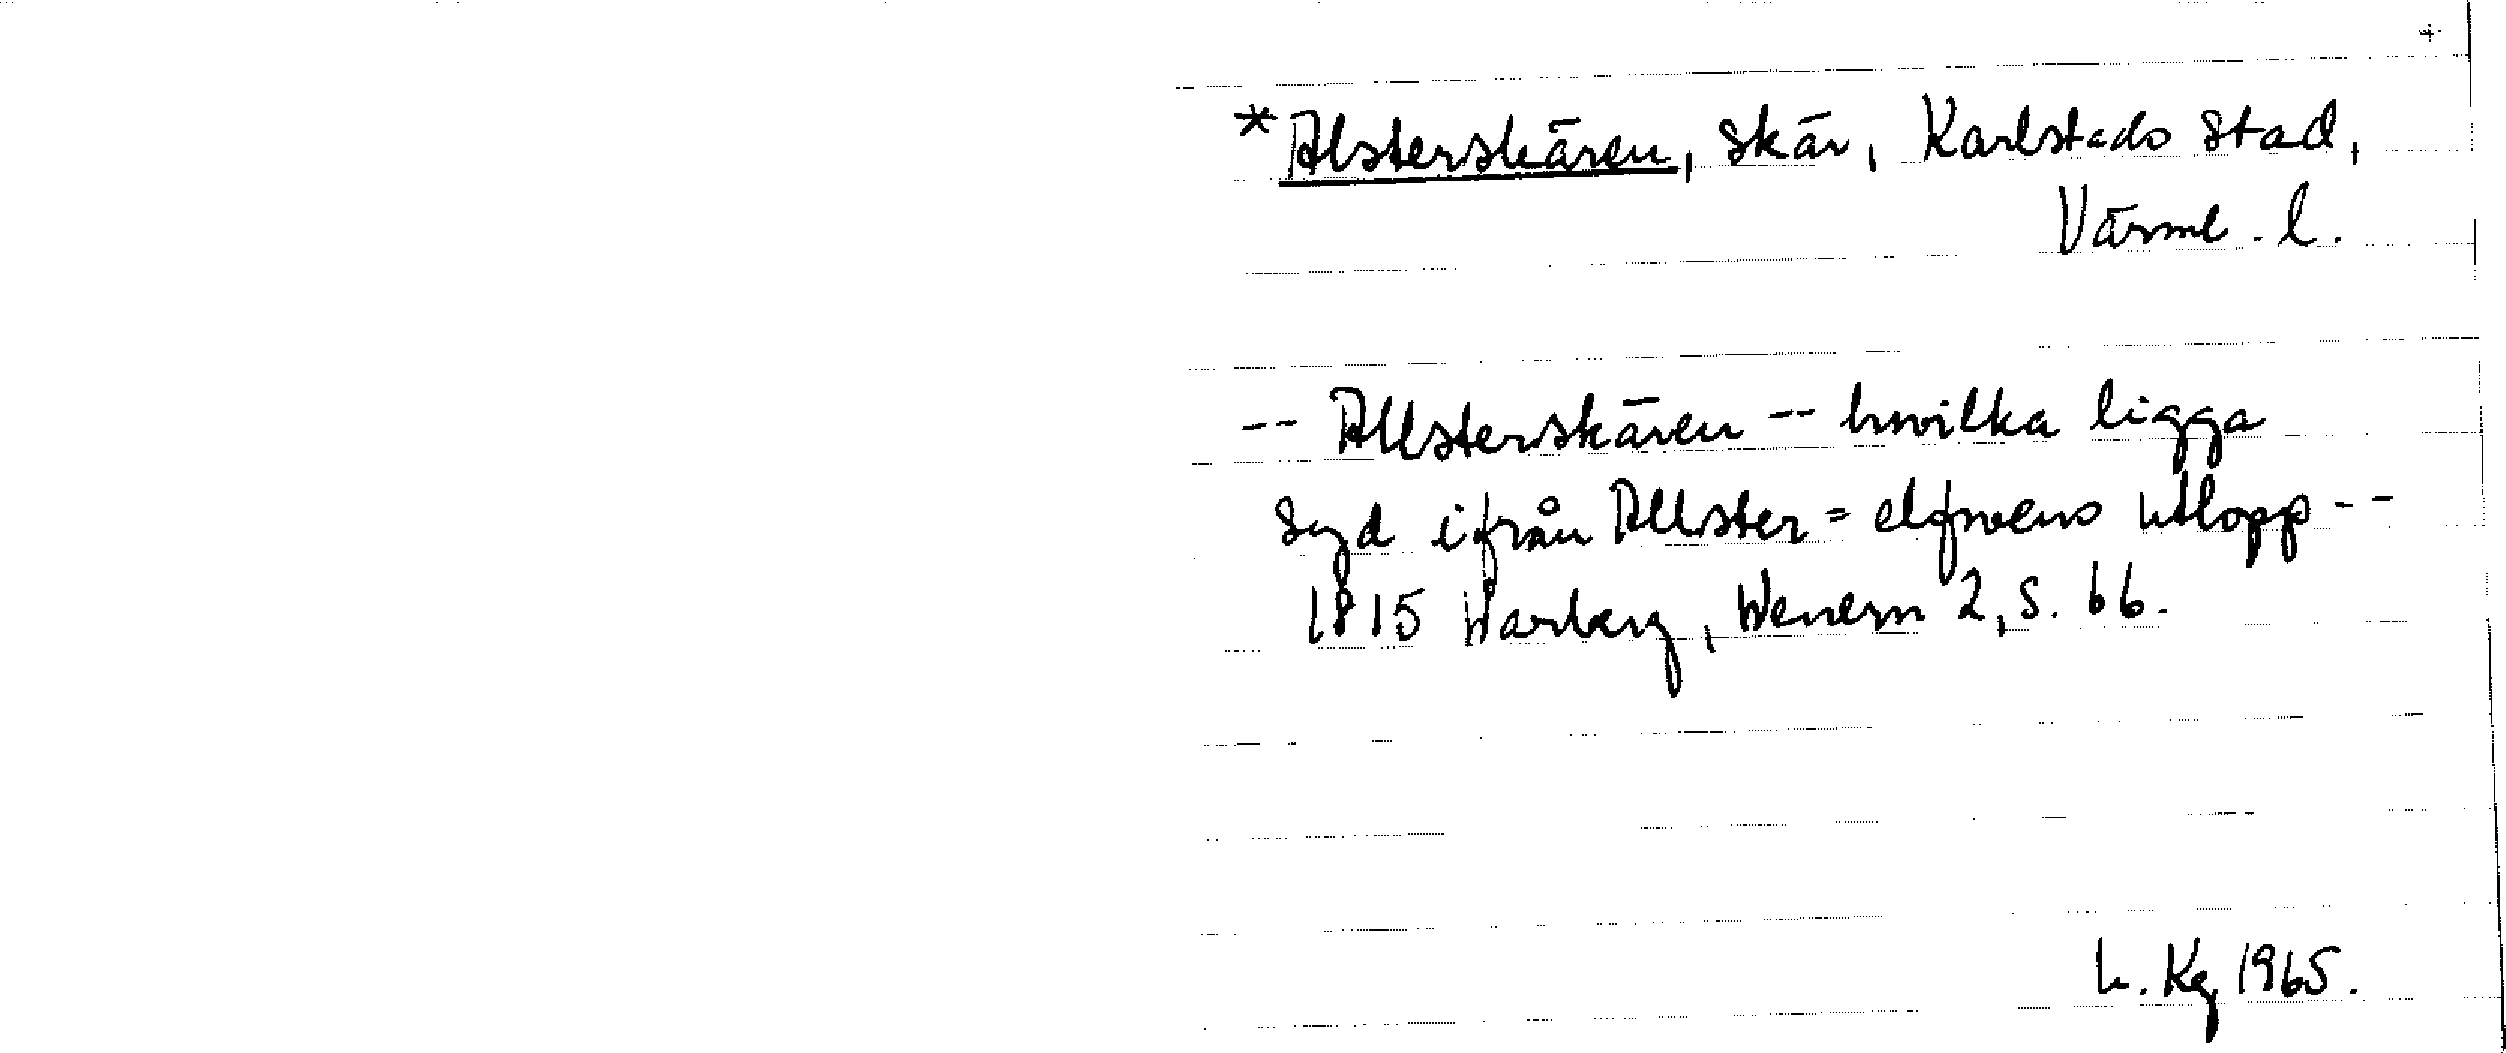 *Alsterskären, skär, Karlstads stad,
Värml. l.
-- Allsterskären -- hwilka ligga
syd ifrån Allster=elfwens utlopp --
1815 Warberg, Wenern 2, s. 66.
L. Kg 1965.